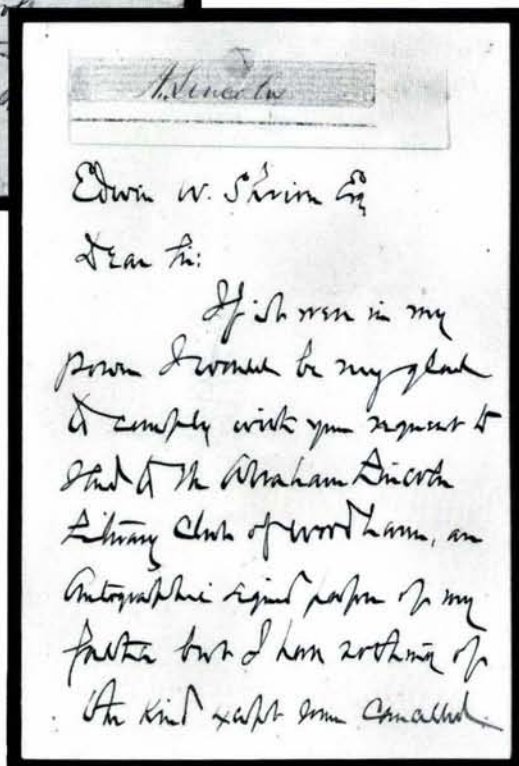 A. Lincoln
Edwin W. Esq
Dear Sir:
If it were in my
power I would be very glad
to comply with your request to
send to the Abraham Lincoln
Literary Club of Woodhaven, an
Autographic signed paper of my
father but I have nothing of
the kind except some cancelled